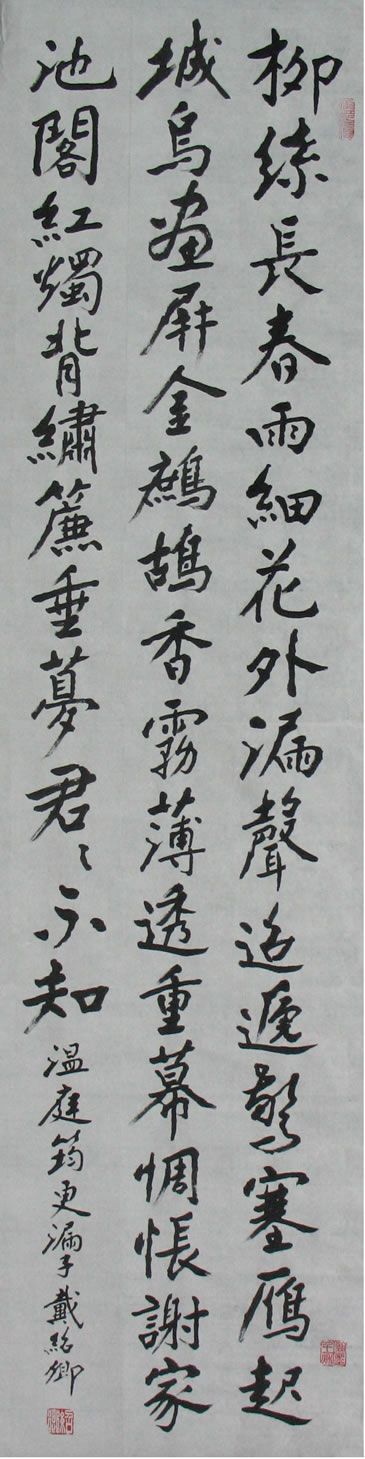 柳絲長春雨細花外漏聲迢遞驚塞雁起
城烏畫屏金鷓鴣香霧薄透重幕惆悵謝家
池閣紅燭背繡簾垂夢君〻不知
溫庭筠更漏子戴紹卿